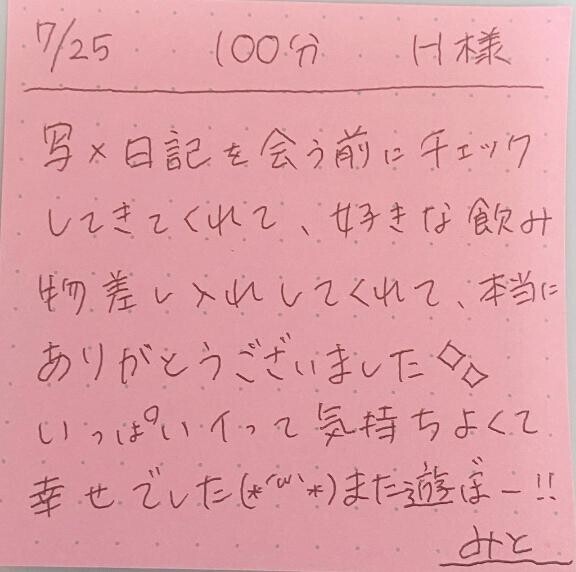 7/25 100分 H様
写メ日記を会う前にチェック
してきてくれて、好きな飲み
物差し入れしてくれて、本当に
ありがとうございました◇◇
いっぱいイって気持ちよくて
幸せでした(*´ω`*)また遊ぼー!!
みと